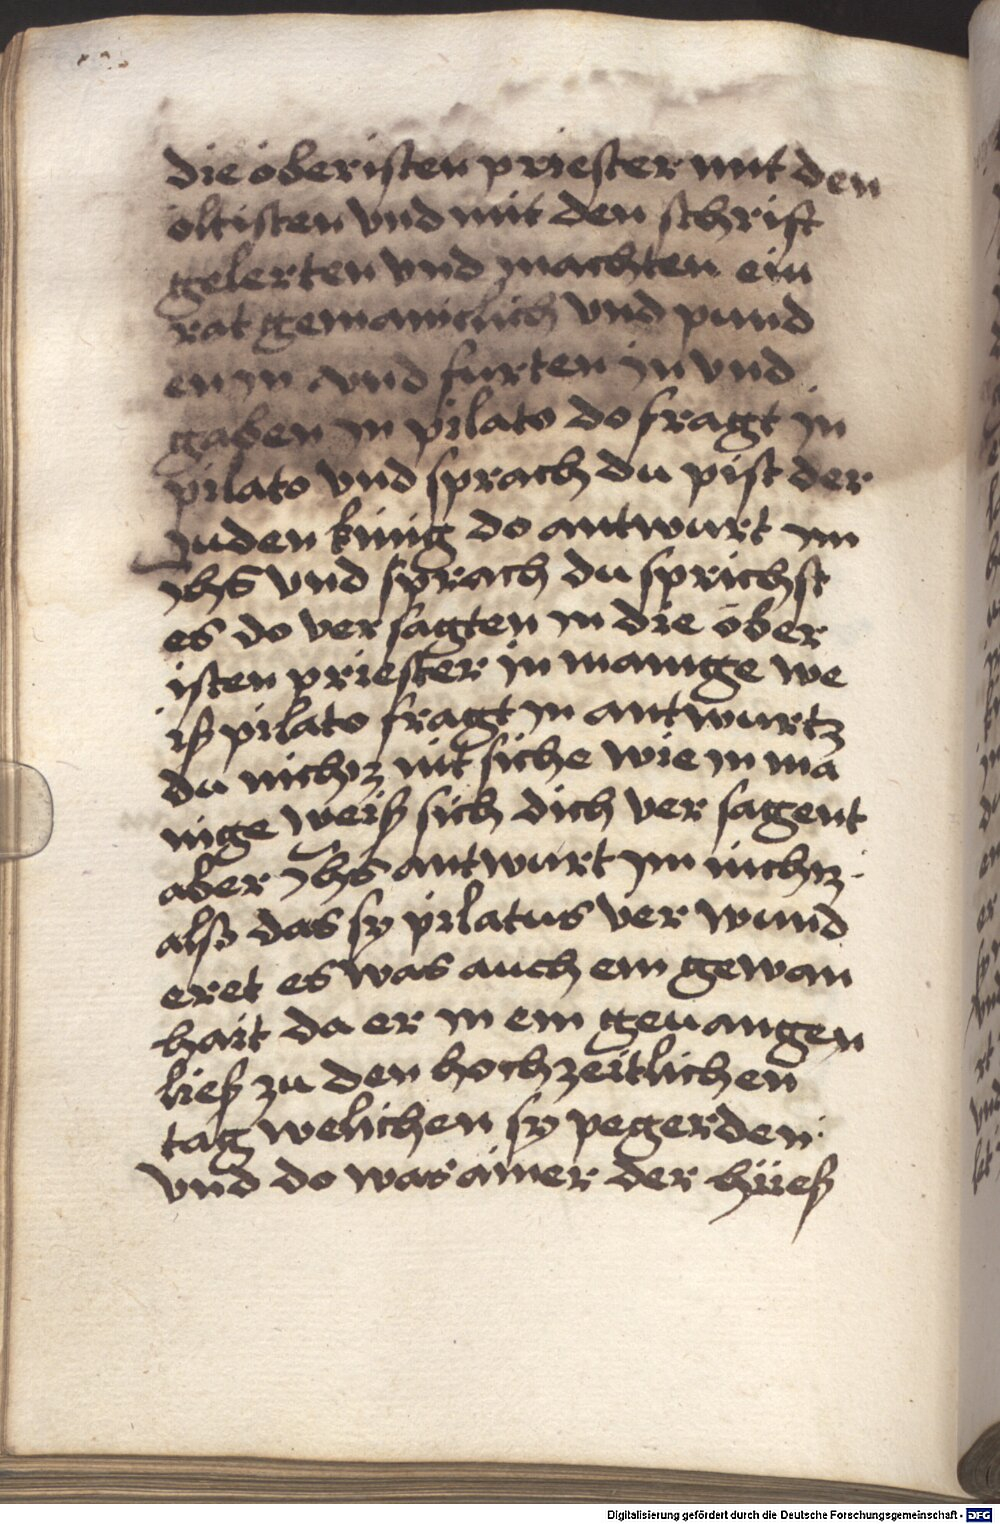 die öberisten priester mit den
öltisten vnd mit den schrift
gelerten vnd machten ein
rat gemainclich vnd pund
en in vnd furten in vnd
gaben in pilato do fragt in
pilato vnd sprach du pist der
Juden künig do antwurt im
Jhs vnd sprach du sprichst
es do ver sagten in die öber
isten priester in manige we
iß pilato fragt in antwurtz
du nichtz nit siche wie in ma
nige weiß sich dich ver sagent
aber Jhs antwurt im nichtz.
alß das sy pilatus ver wund
eret es was auch ein gewan
hait da er in ein geuangen
ließ zu den hochzeitlichen
tag welichen sy pegerden.
vnd do was ainer der hieß
Digitalisierung gefördert durch die Deutsche Forschungsgemeinschaft - DFG